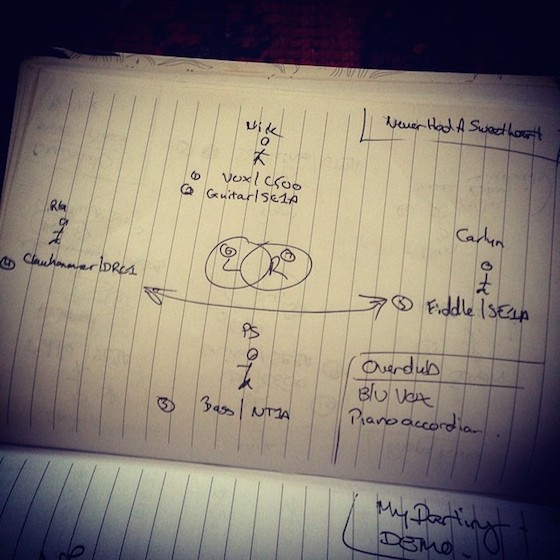 Never Had A Sweetheart
Nick
① Vox / C500
② Guitar / SE1A
RG
④ Clawhammer / DRC1
⑥ L R ⑦
Carlyn
⑤ Fiddle / SE1A
PS
③ Bass / NT1A
Overdub
B/U Vox
Piano accordian
My Darling
DEMO